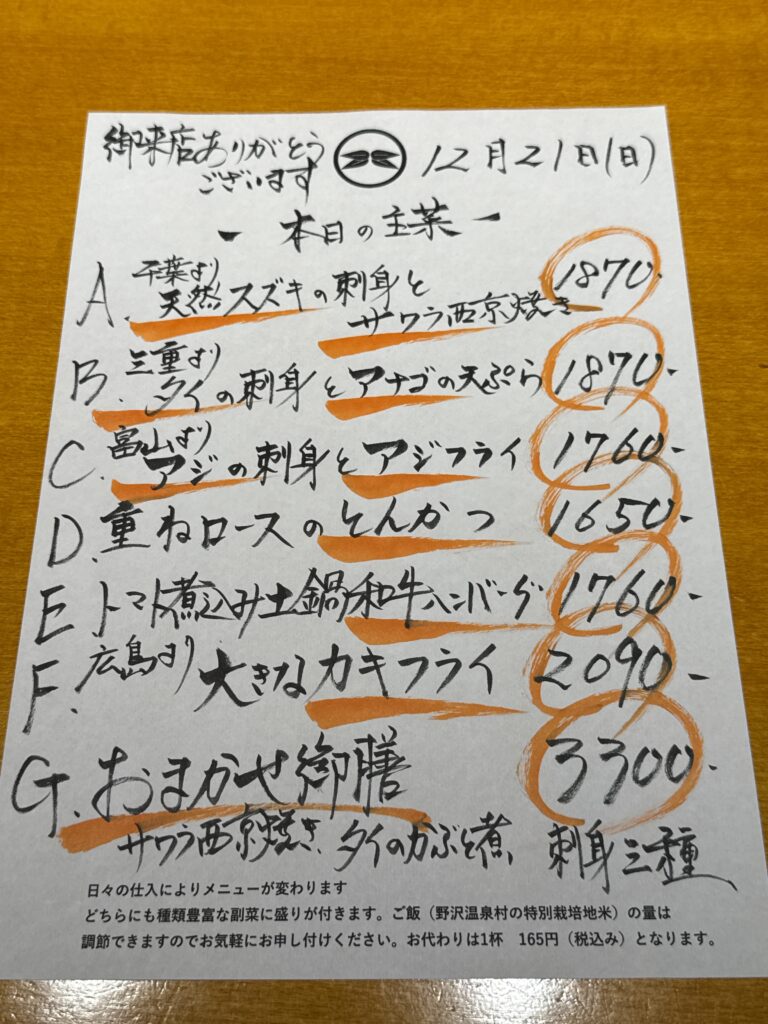 御来店ありがとう
ございます
12月21日(日)
- 本日の主菜 -
A. 千葉より
天然スズキの刺身と
サワラ西京焼き 1870-
B. 三重より
タイの刺身とアナゴの天ぷら 1870-
C. 富山より
アジの刺身とアジフライ 1760-
D. 重ねロースのとんかつ 1650-
E トマト煮込み土鍋和牛ハンバーグ 1760-
F. 広島より 大きなカキフライ 2090-
G. おまかせ御膳 3300-
サワラ西京焼き、タイのかぶと煮、刺身三種
日々の仕入によりメニューが変わります
どちらにも種類豊富な副菜に盛りが付きます。ご飯（野沢温泉村の特別栽培地米）の量は
調節できますのでお気軽にお申し付けください。お代わりは1杯　165円（税込み）となります。